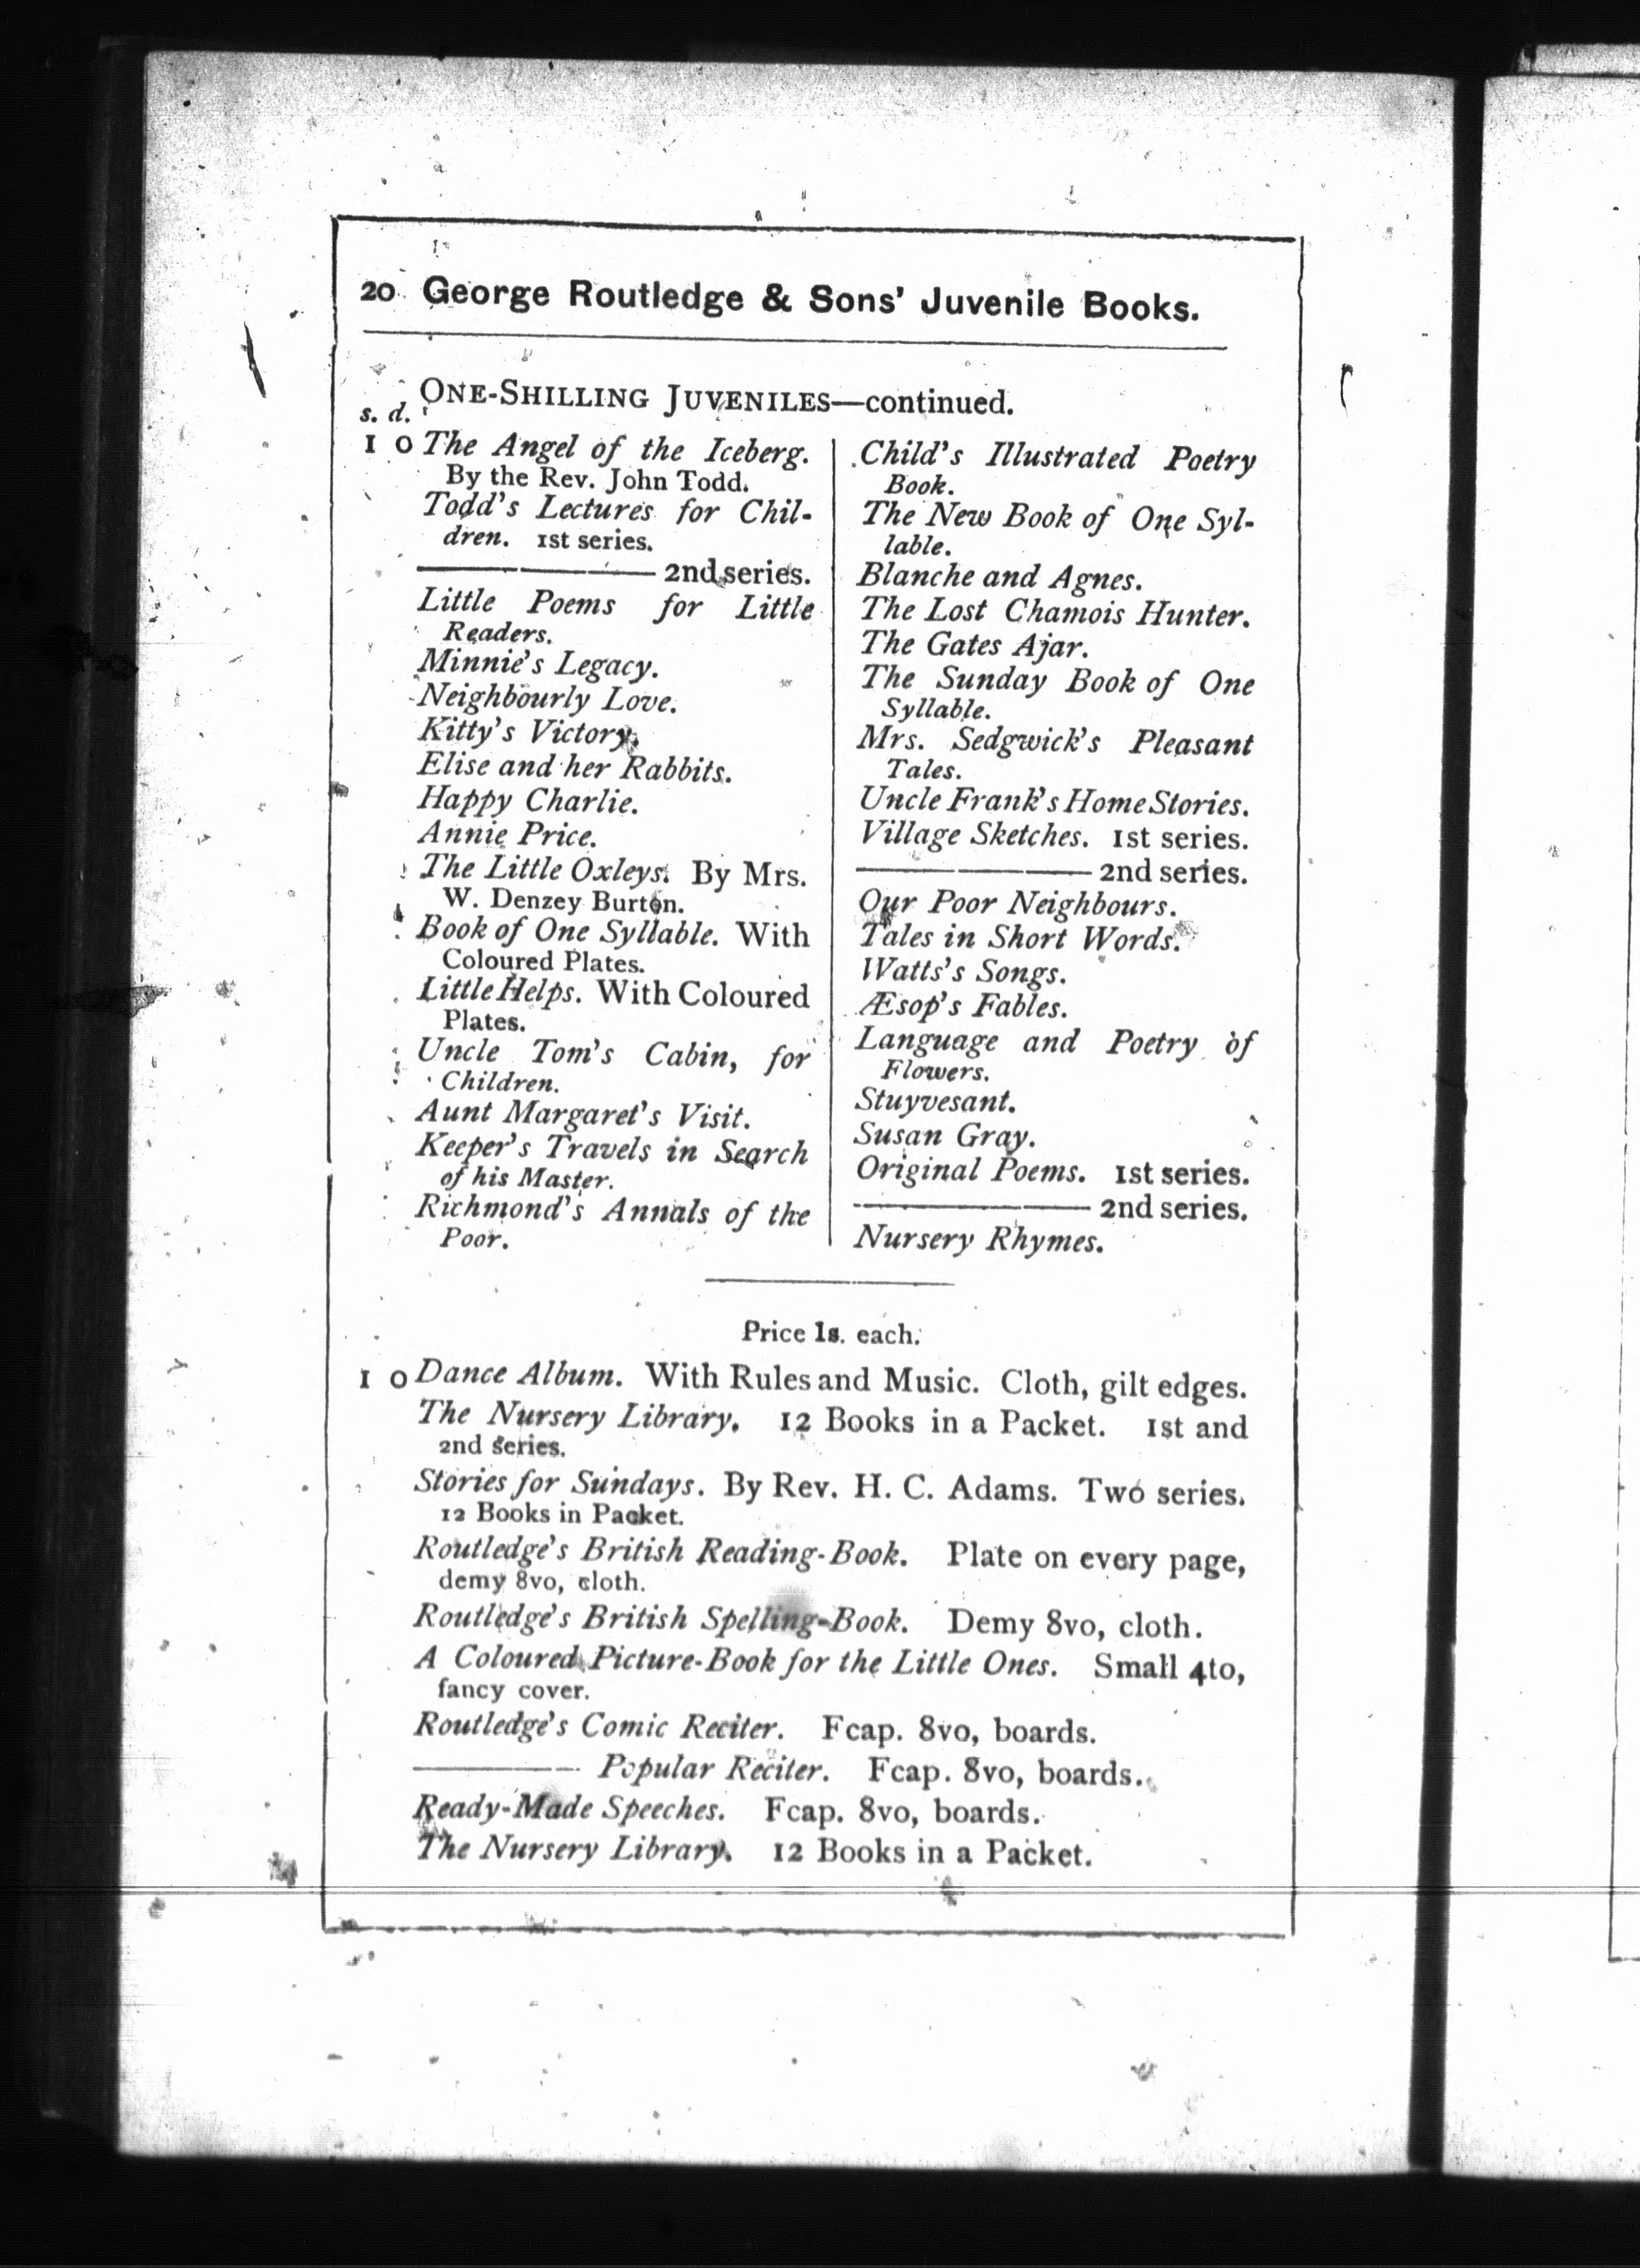 20 George Routledge & Sons' Juvenile Books.
ONE-SHILLING JUVENILES—continued.
s. d.
1 0 The Angel of the Iceberg.
By the Rev. John Todd.
Todd's Lectures for Chil-
dren. 1st series.
——— 2nd series.
Little Poems for Little
Readers.
Minnie's Legacy.
Neighbourly Love.
Kitty's Victory.
Elise and her Rabbits.
Happy Charlie.
Annie Price.
The Little Oxleys. By Mrs.
W. Denzey Burton.
Book of One Syllable. With
Coloured Plates.
Little Helps. With Coloured
Plates.
Uncle Tom's Cabin, for
Children.
Aunt Margaret's Visit.
Keeper's Travels in Search
of his Master.
Richmond's Annals of the
Poor.
Child's Illustrated Poetry
Book.
The New Book of One Syl-
lable.
Blanche and Agnes.
The Lost Chamois Hunter.
The Gates Ajar.
The Sunday Book of One
Syllable.
Mrs. Sedgwick's Pleasant
Tales.
Uncle Frank's Home Stories.
Village Sketches. 1st series.
——— 2nd series.
Our Poor Neighbours.
Tales in Short Words.
Watts's Songs.
Æsop's Fables.
Language and Poetry of
Flowers.
Stuyvesant.
Susan Gray.
Original Poems. 1st series.
——— 2nd series.
Nursery Rhymes.
Price 1s. each.
1 0 Dance Album. With Rules and Music. Cloth, gilt edges.
The Nursery Library. 12 Books in a Packet. 1st and
2nd series.
Stories for Sundays. By Rev. H. C. Adams. Two series.
12 Books in Packet.
Routledge's British Reading-Book. Plate on every page,
demy 8vo, cloth.
Routledge's British Spelling-Book. Demy 8vo, cloth.
A Coloured Picture-Book for the Little Ones. Small 4to,
fancy cover.
Routledge's Comic Reciter. Fcap. 8vo, boards.
——— Popular Reciter. Fcap. 8vo, boards.
Ready-Made Speeches. Fcap. 8vo, boards.
The Nursery Library. 12 Books in a Packet.